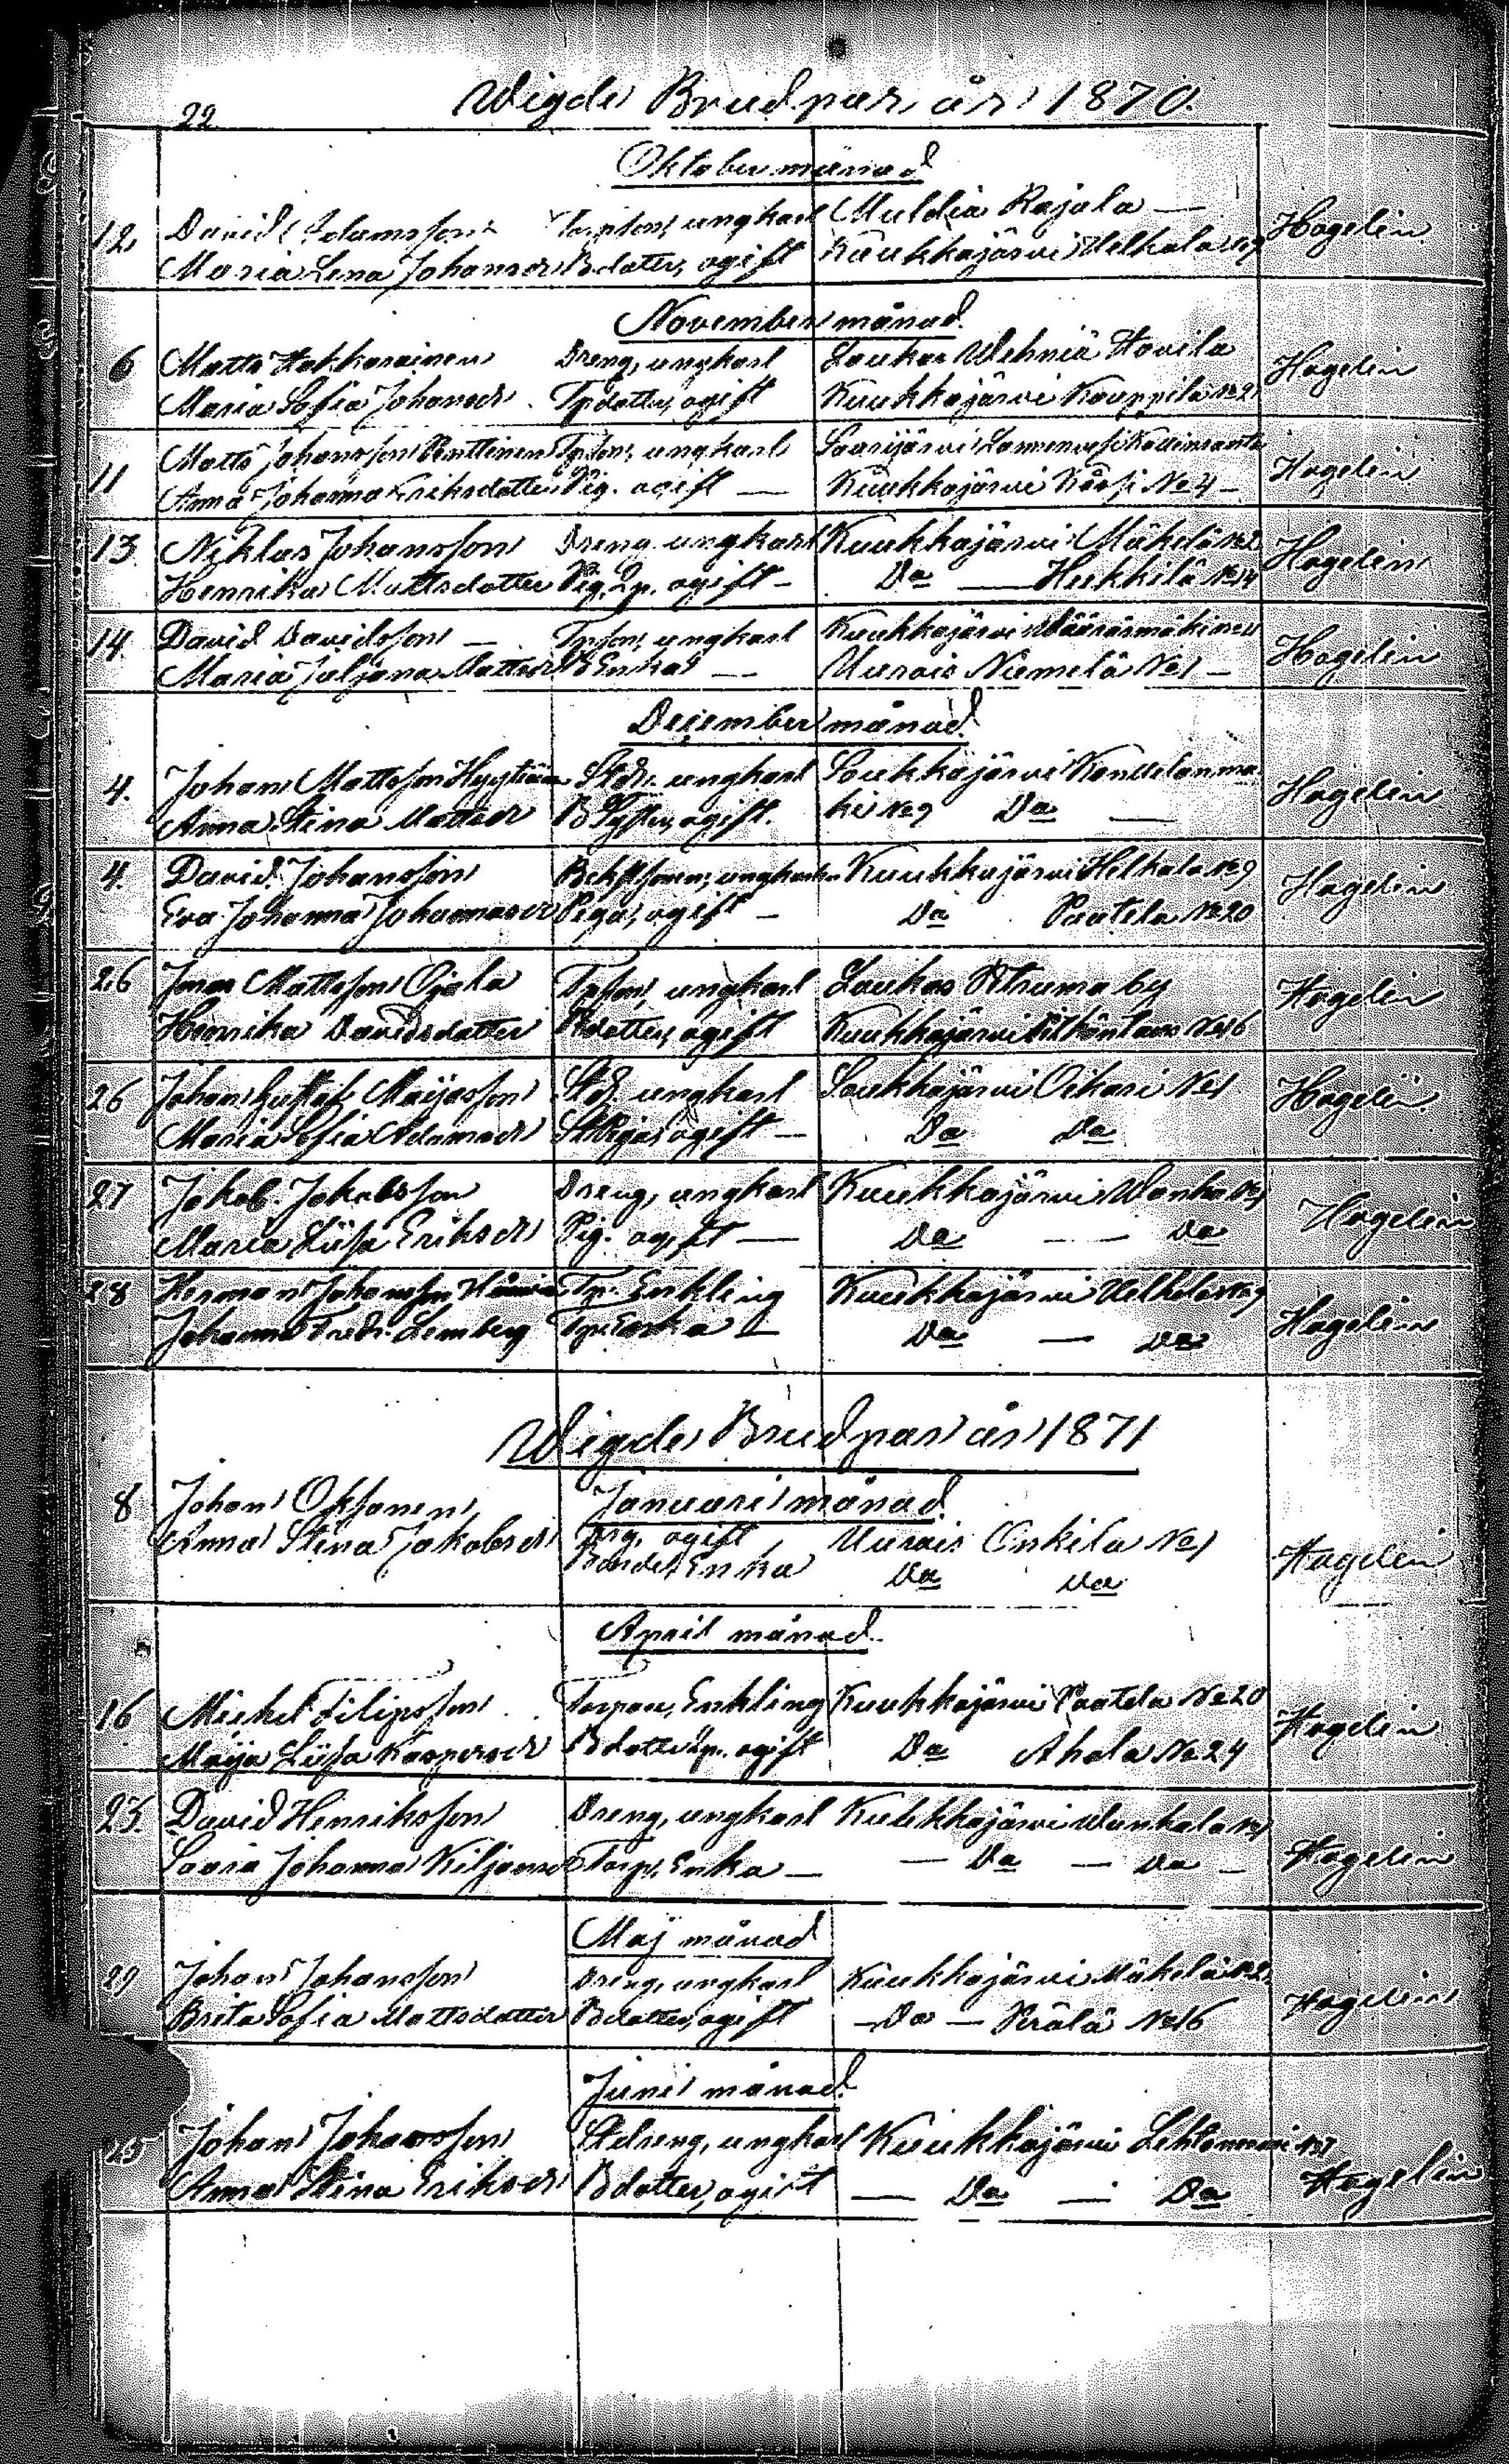 22 Wigde Brudpar år 1870.
Oktober månad
12. David Adamsson Torpson, ungkarl Multia Rajala — Hagelin
Maria Lena Johansdr Bdotter, ogift Kuukkajärvi Helkala No 9
November månad.
6 Matts Hakkarainen Dreng, ungkarl Laukas Wehniä Hovila Hagelin
Maria Sofia Johansdr. Tpdotter, ogift Kuukkajärvi Kauppila No 21
11 Matts Johansson Penttinen Tpson, ungkarl Saarijärvi Hagelin
Anna Johanna Eriksdotter Pig. ogift — Kuukkajärvi No 4 —
13. Niklas Johansson Dreng ungkarl Kuukkajärvi Mäkelä No 2 Hagelin
Henrika Mattsdotter Pig. Lp. ogift — Do — Heikkilä No 14
14. David Davidsson — Tpson, ungkarl Kuukkajärvi Hagelin
Maria Juljana Mattsdr B Enka — Uurais Niemelä No 1 —
December månad.
4. Johan Mattsson Hyytiäinen Stdr. ungkarl Soukkajärvi Hagelin
Anna Stina Mattsdr B Syster, ogift. ki No 9 Do —
4. David Johansson ungkarl Kuukkajärvi Helkala No 9 Hagelin
Eva Johanna Johansdr Piga, ogift — Do Paatela No 20
26 Jonas Mattsson Ojala Tpson, ungkarl Laukas Wtruma by Hagelin
Henrika Davidsdotter dotter, ogift Kuukkajärvi No 16
26 Johan Gustaf Maijasson Stdr ungkarl Soukkajärvi Oikari No 1 Hagelin
Maria Sofia Adamsdr StPiga, ogift — Do Do
27 Jakob Jakobsson Dreng, ungkarl Kuukkajärvi Hagelin
Maria Liisa Eriksdr Pig. ogift — Do — Do
28 Herman Johansson Tp. Enkling Kuukkajärvi Helkala No 9 Hagelin
Johanna Fredr. Lemberg Tp Enka — Do — Do
Wigde Brudpar år 1871
Januari månad.
8 Johan Oksanen, Drg, ogift, Uurais Onkila No 1 Hagelin
Anna Stina Jakobsdr Bonde Enka Do Do
April månad.
16 Michel Filipsson Torpare, Enkling Kuukkajärvi Paatela No 20 Hagelin
Maija Liisa Kaspersdr Bdotter Lp. ogift Do Ahola No 24
23. David Henriksson Dreng, ungkarl Kuukkajärvi Hagelin
Johanna Kiljansdr Torp. Enka — — Do — Do —
Maj månad
29 Johan Johansson Dreng, ungkarl Kuukkajärvi Mäkelä No 2 Hagelin
Brita Sofia Mattsdotter Bdotter, ogift — Do — Perälä No 16
Juni månad.
25 Johan Johansson Stdreng, ungkarl Kuukkajärvi Hagelin
Anna Stina Eriksdr Bdotter, ogift — Do — Do